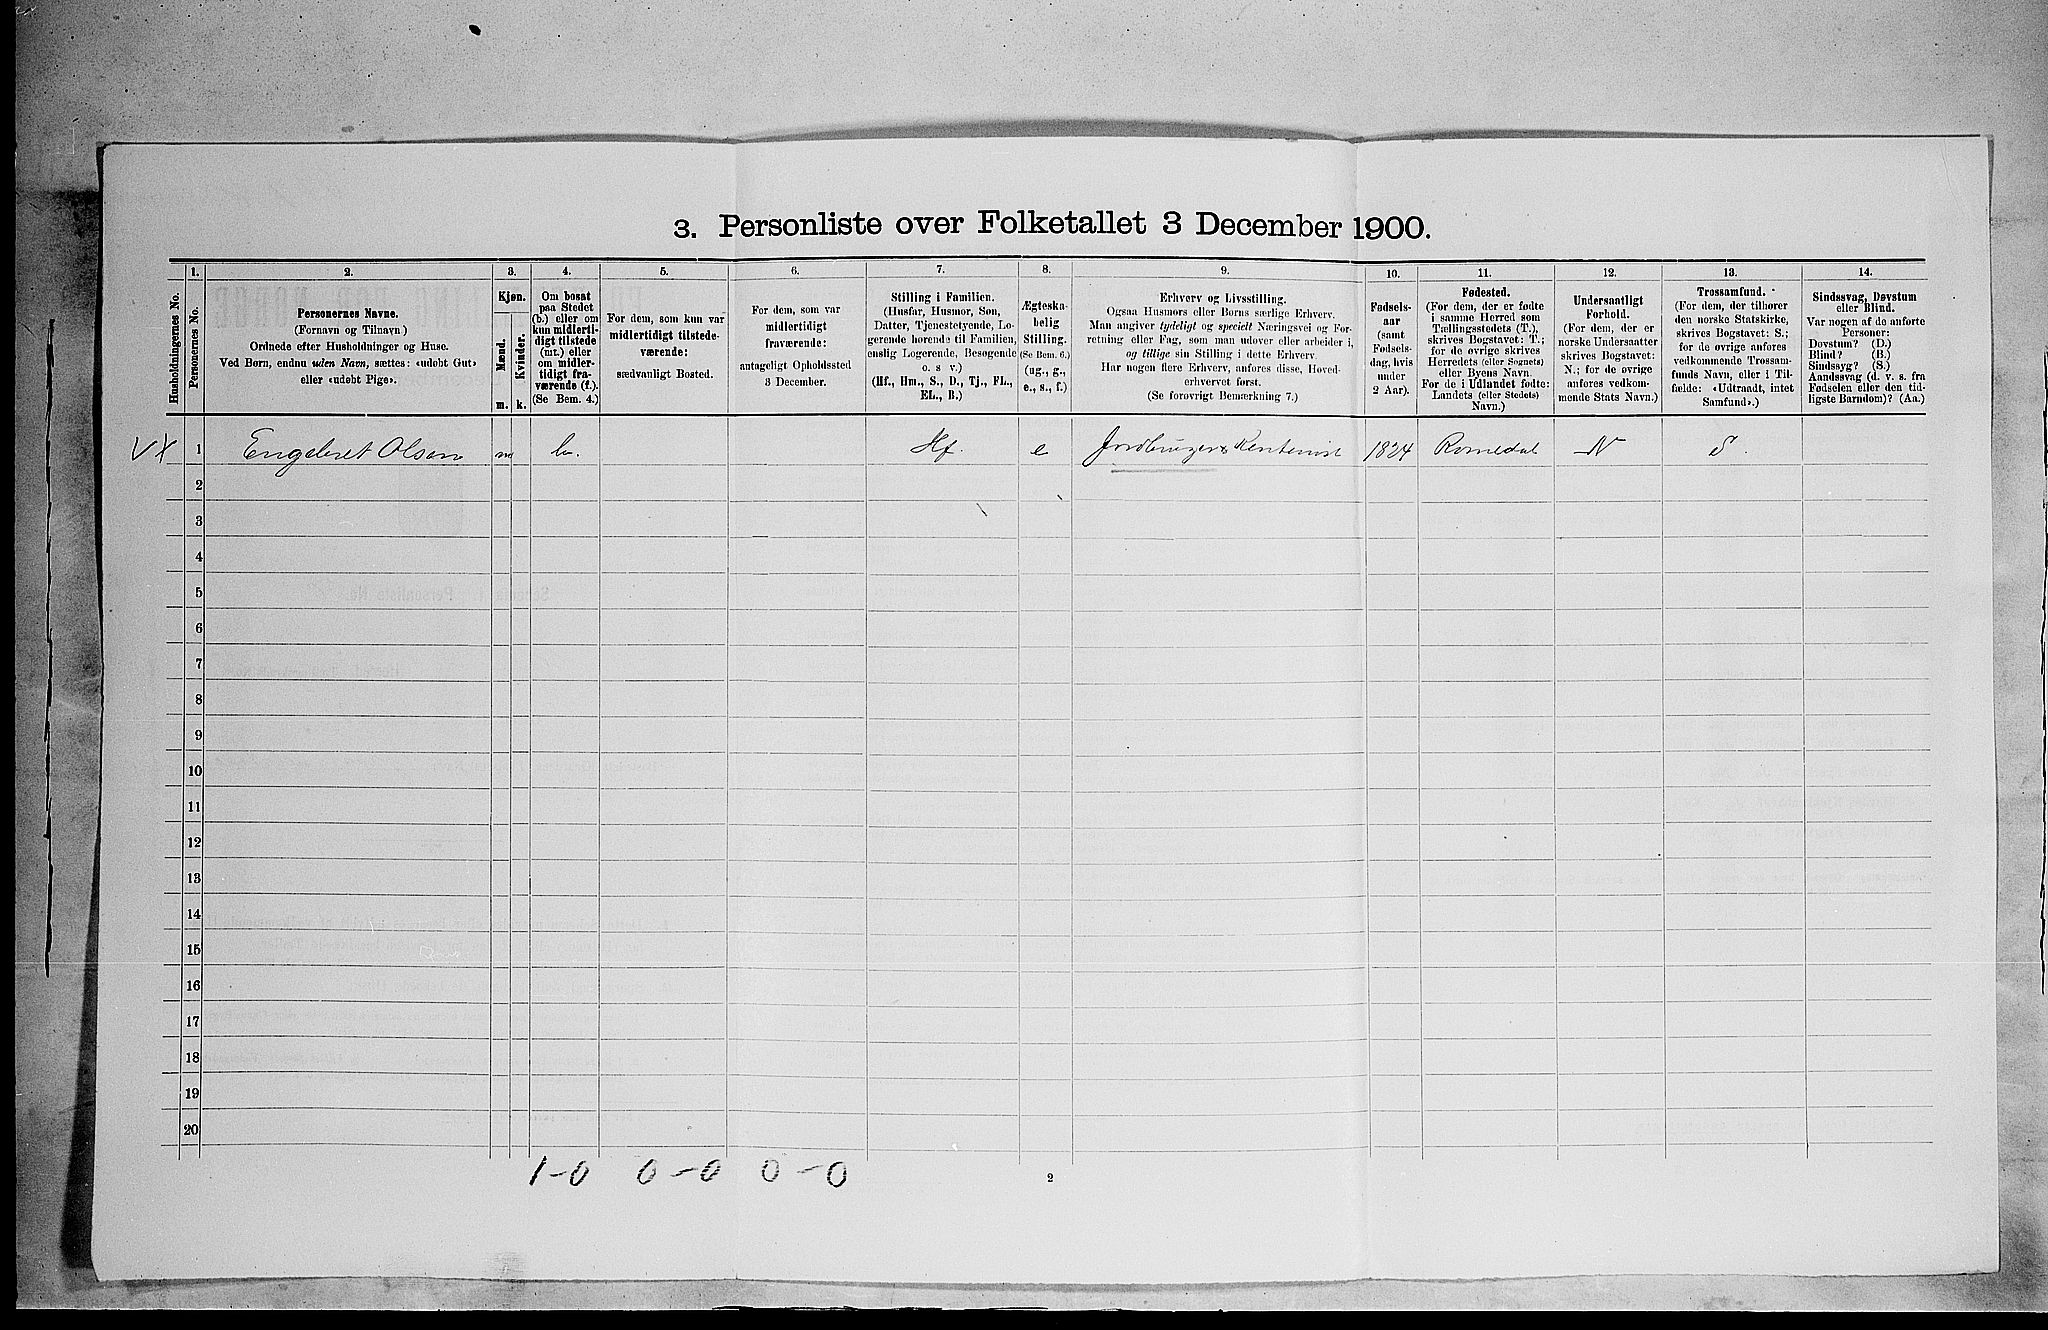 3. Personliste over Folketallet 3 December 1900.
1. 2. 3. 4. 5. 6. 7. 8. 9. 10. 11. 12. 13. 14.
Husholdningernes No.
Personernes No.
Personernes Navne.
(Fornavn og Tilnavn.)
Ordnede efter Husholdninger og Huse.
Ved Børn, endnu uden Navn, sættes: «udøbt Gut»
eller «udøbt Pige».
Kjøn.
Mænd.
Kvinder.
m. k.
Om bosat
paa Stedet
(b.) eller om
kun midlerti-
digt tilstede
(mt.) eller
om midler-
tidigt fra-
værende (f.).
(Se Bem. 4.)
For dem, som kun var
midlertidigt tilstede-
værende:
sædvanligt Bosted.
For dem, som var
midlertidigt
fraværende:
antageligt Opholdssted
3 December.
Stilling i Familien.
(Husfar, Husmor, Søn,
Datter, Tjenestetyende, Lo-
gerende hørende til Familien,
enslig Logerende, Besøgende
o. s v.)
(Hf., Hm., S., D., Tj., FL.,
EL., B.)
Ægteska-
belig
Stilling.
(Se Bem. 6.)
(ug., g.,
e., s., f.)
Erhverv og Livsstilling.
Ogsaa Husmors eller Børns særlige Erhverv.
Man angiver tydeligt og specielt Næringsvei og For-
retning eller Fag, som man udøver eller arbeider i,
og tillige sin Stilling i dette Erhverv.
Har nogen flere Erhverv, anføres disse, Hoved-
erhvervet først.
(Se forøvrigt Bemærkning 7.)
Fødsels-
aar
(samt
Fødsels-
dag, hvis
under
2 Aar).
Fødested.
(For dem, der er fødte
i samme Herred som
Tællingsstedets (T.),
skrives Bogstavet: T.;
for de øvrige skrives
Herredets (eller Sognets)
eller Byens Navn.
For de i Udlandet fødte:
Landets (eller Stedets)
Navn.)
Undersaatligt
Forhold.
(For dem, der er
norske Undersaatter
skrives Bogstavet:
N.; for de øvrige
anføres vedkom-
mende Stats Navn.)
Trossamfund.
(For dem, der tilhører
den norske Statskirke,
skrives Bogstavet: S.;
for de øvrige anføres
vedkommende Trossam-
funds Navn, eller i Til-
fælde: «Udtraadt, intet
Samfund».)
Sindssvag, Døvstum
eller Blind.
Var nogen af de anførte
Personer:
Døvstum? (D.)
Blind? (B.)
Sindssyg? (S.)
Aandssvag (d. v. s. fra
Fødselen eller den tid-
ligste Barndom)? (Aa.)
VX 1 Engebret Olsen m b. Hf. e Jordbruger & Rentenist 1824 Romedal N S.
2
3
4
5
6
7
8
9
10
11
12
13
14
15
16
17
18
19
20
1-0 0-0 0-0
2